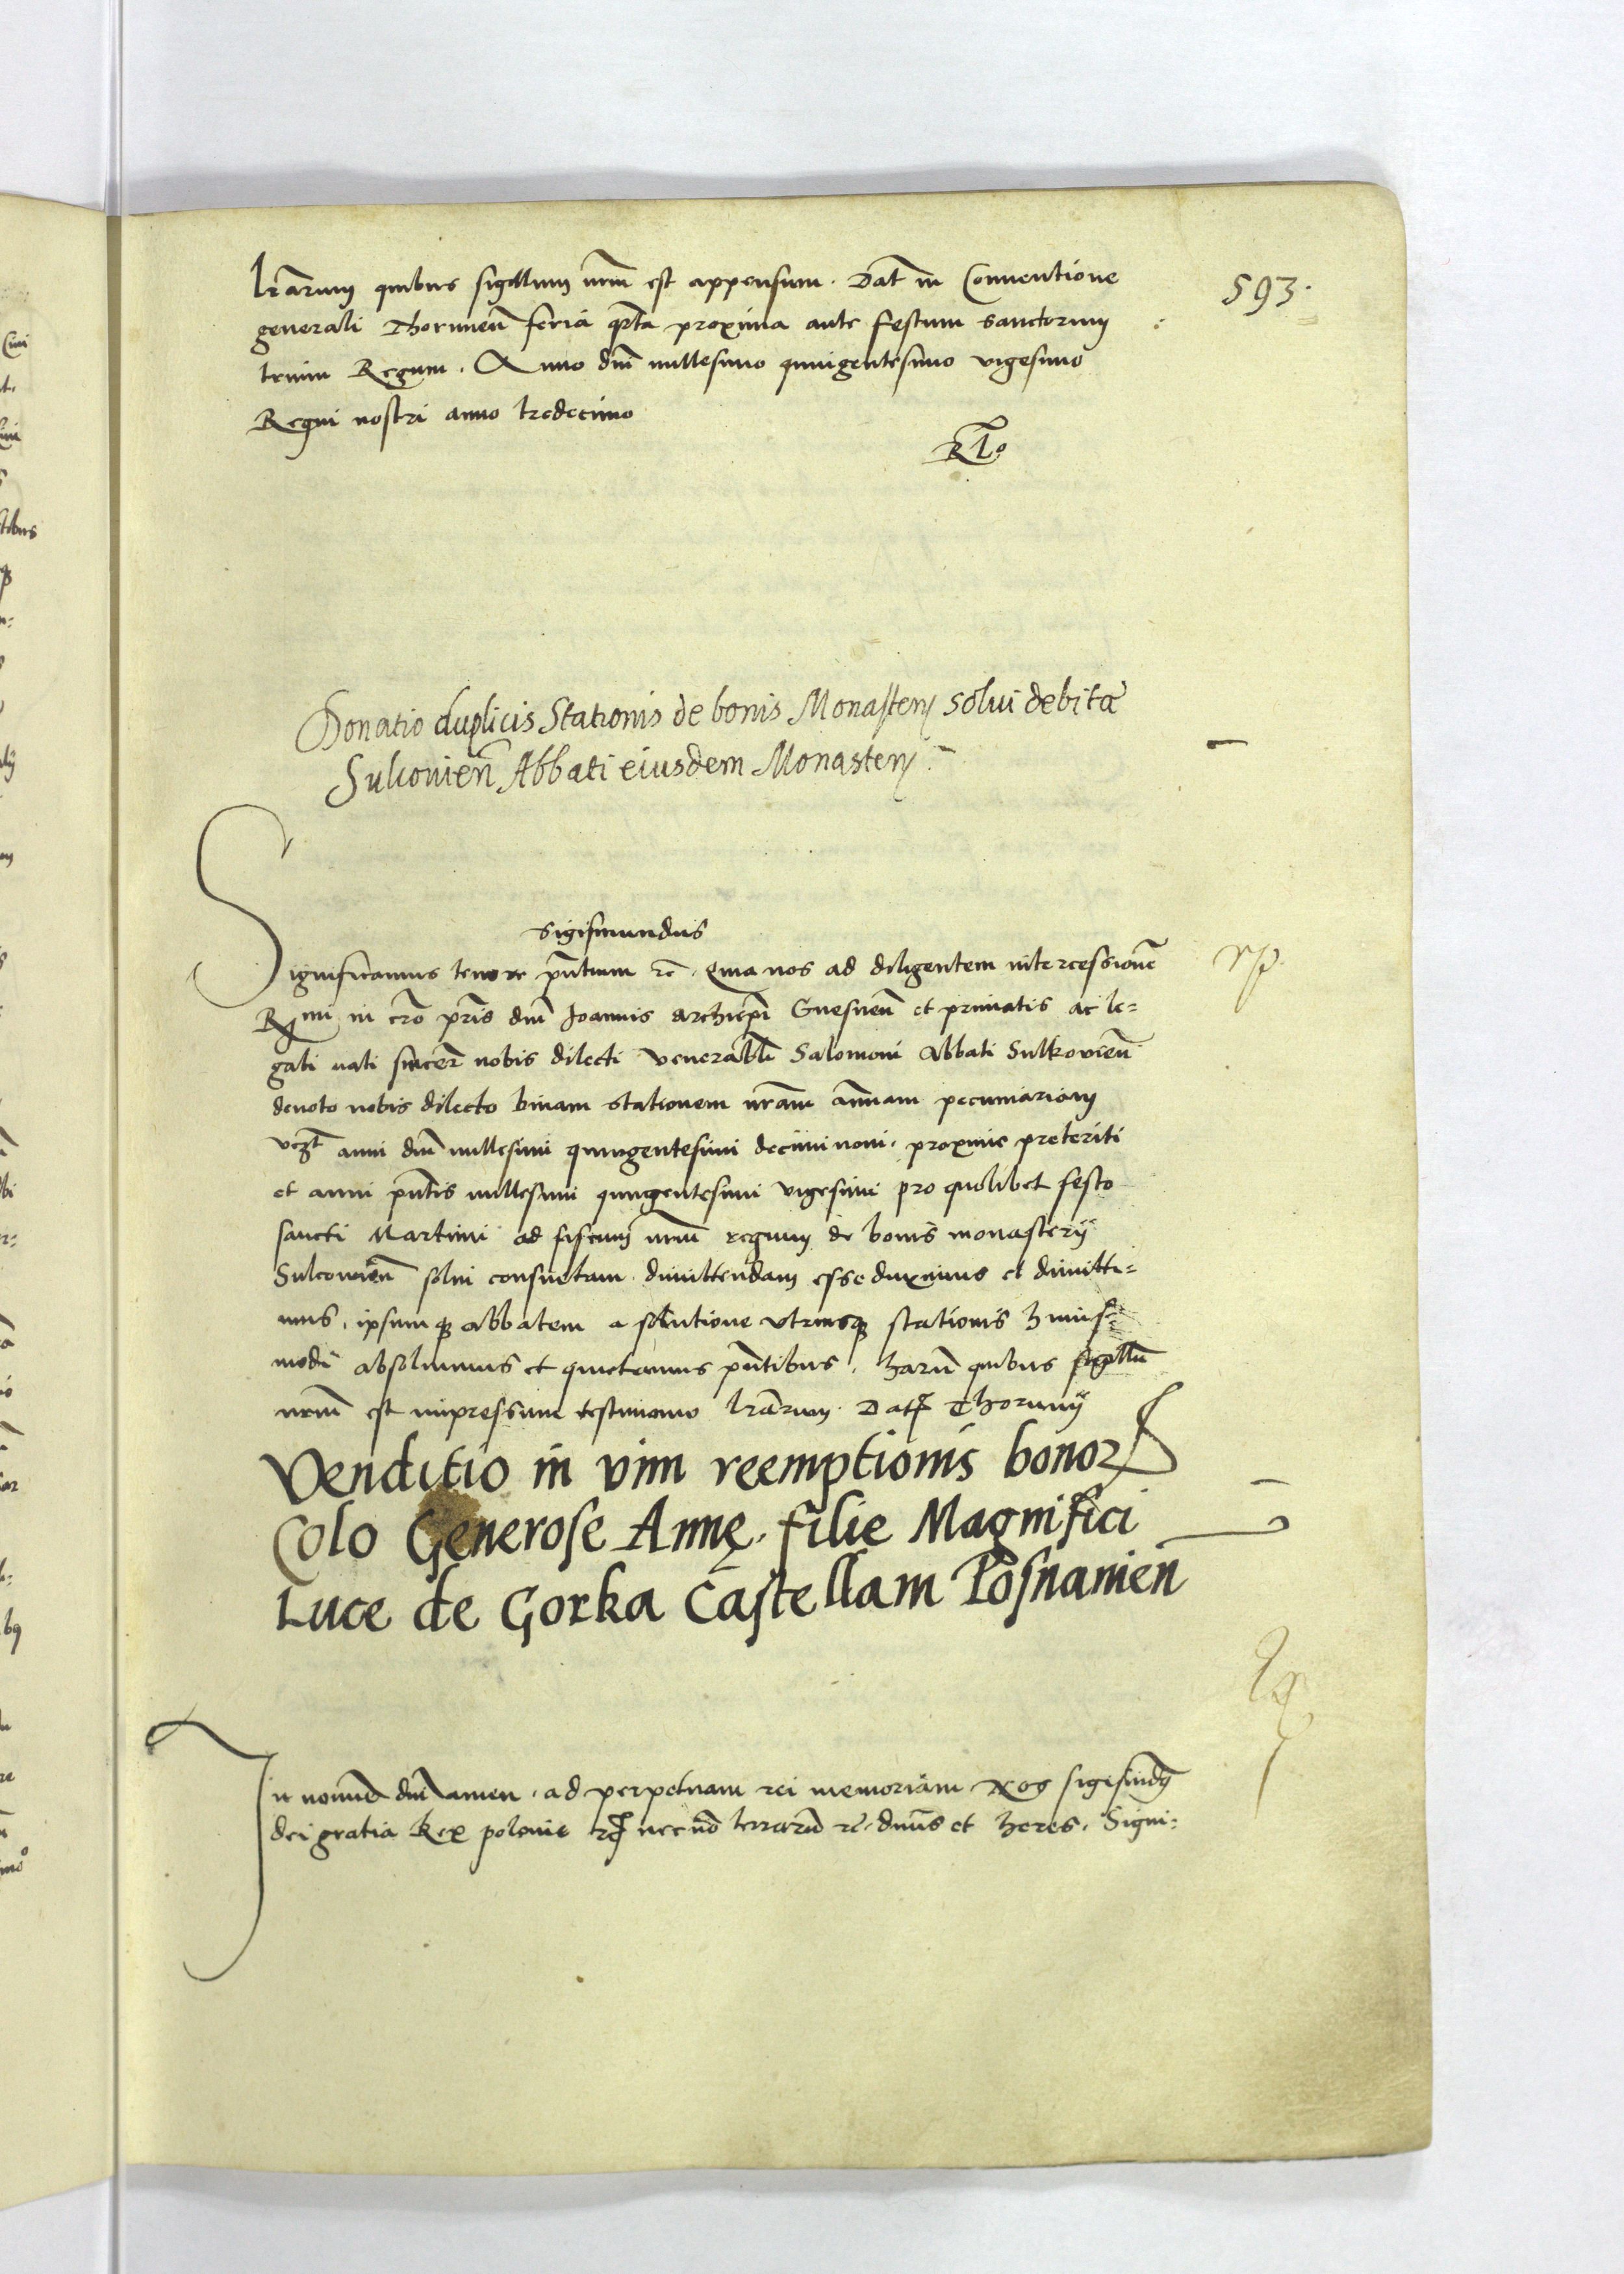 lrarum quibus sigillum nrm est appensum. Dat in Conventione
593.
generali Thorunen feria qrta proxima ante festum sanctorum
trium Regum. Anno dni millesimo quingentesimo vigesimo
Regni nostri anno tredecimo
Donatio duplicis Stationis de bonis Monasterij solvi debitae
Sulcovien Abbati eiusdem Monasterij
Sigismundus
Significamus tenore pntium rc. Quia nos ad diligentem intercessione
Rmi in cro pris dni Joannis archiepi Gnesnen et primatis ac le=
gati nati sincer nobis dilecti venerabli Salomoni Abbati Sulkovien
devoto nobis dilecto binam stationem nram annuam pecuniariam
vczt anni dni millesimi quingentesimi decimi noni. proxime preteriti
et anni pntis millesimi quingentesimi vigesimi pro quolibet festo
sancti Martini ad fiscum nrum regium de bonis monasterij
Sulcovien solvi consuetam. dimittendam esse duximus et dimitti=
mus. ipsumq abbatem a solutione utriusq stationis huius=
modi absolvimus et quietamus pntibus. harum quibus sigillu
nrum est impressum testimonio lrarum. Dat Thorunij
Venditio in vim reemptionis bonor
Colo Generose Annę. filie Magnifici
Luce de Gorka Castellani Posnanien
In nomine dni amen. ad perpetuam rei memoriam. Nos sigismdus
dei gratia Rex polonie rc nec no terraru rc. dnus et heres. Signi=